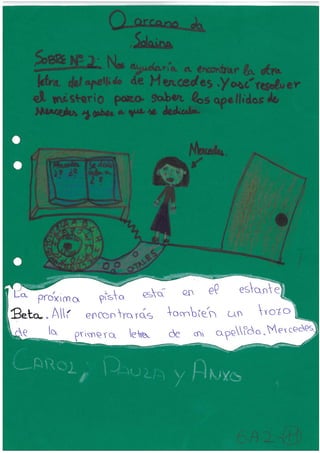 O arcano da
Solaina
SOBRE Nº 2: Nos ayudaría a encontrar la otra
letra del apellido de Mercedes. Y así resolver
el misterio para saber los apellidos de
Mercedes y saber a que se dedicaba.
Mercedes.
Mercedes
La próxima pista está en el estante
Beta. Allí encontrarás también un trozo
de la primera letra de mi apellido. Mercedes
CAROL, PAULA Y ANXO
6A2-11